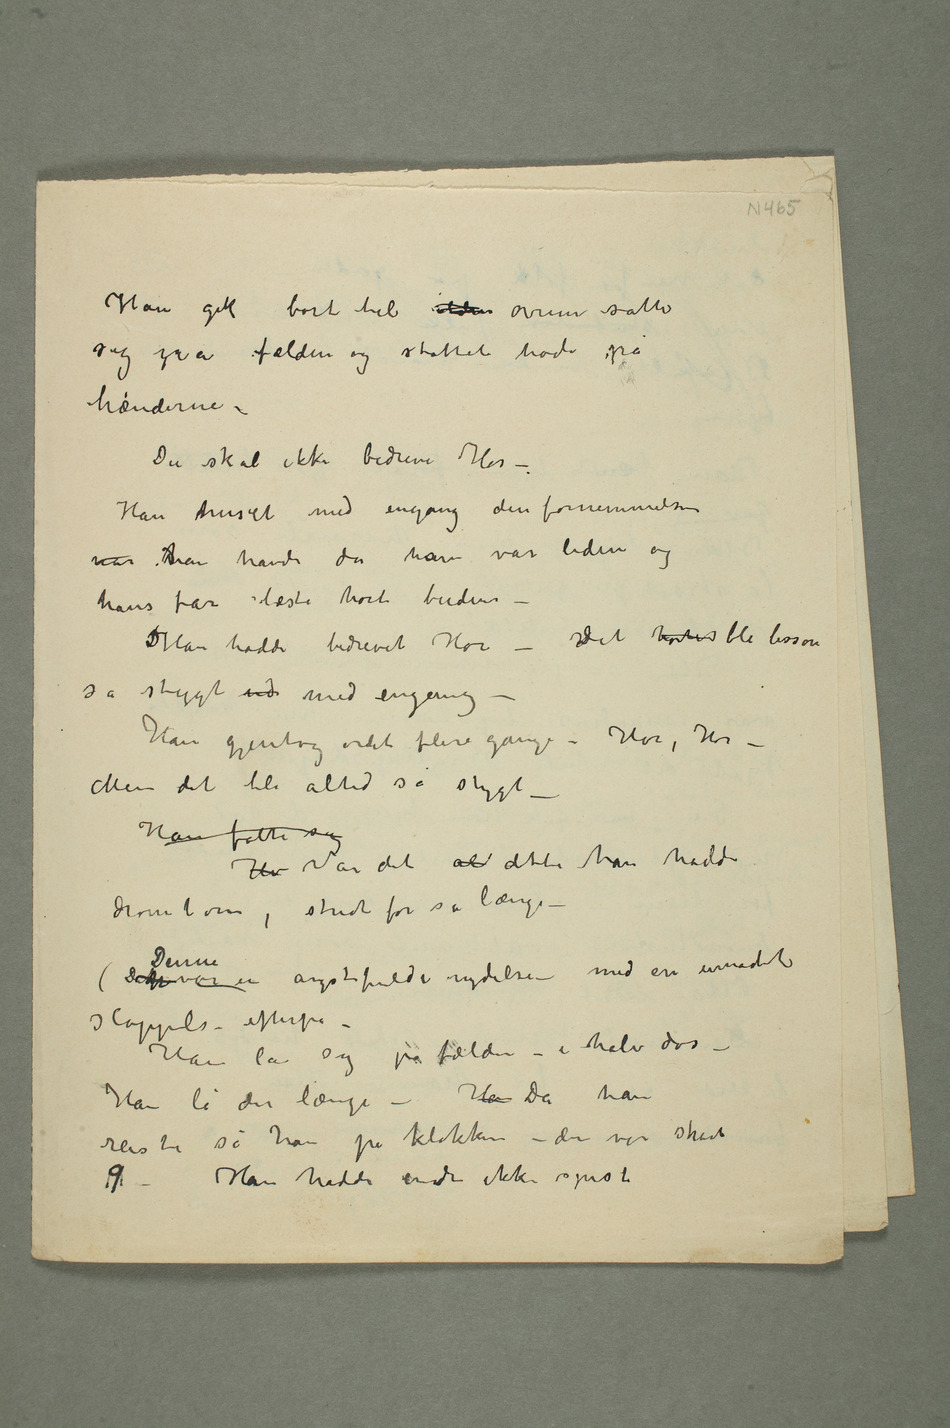 N465
Han gik bort til ilden ovnen satte
sig paa fælden og støttet hode på
hænderne –
Du skal ikke bedrive Hor –
Han huset med engang den fornemmelsen
når han havde da han var liden og
hans far læste høit budene –
Han hadde bedrevet Hor – Det hørtes ble lissom
så stygt ud med engang –
Han gjentog ordet flere gange – Hor, Hor –
Men det ble altid så stygt –
Han følte sig
Hv Var det al dette han hadde
drømt om, stridt for så længe –
Denne
( Det var en angstfulde nydelsen med en umådelig
slappelse efterpå –
Han la sig på fælden – i halv døs –
Han lå der længe – Han Da han
reiste så han på klokken – den var straks
9 – Han hadde endnu ikke spist